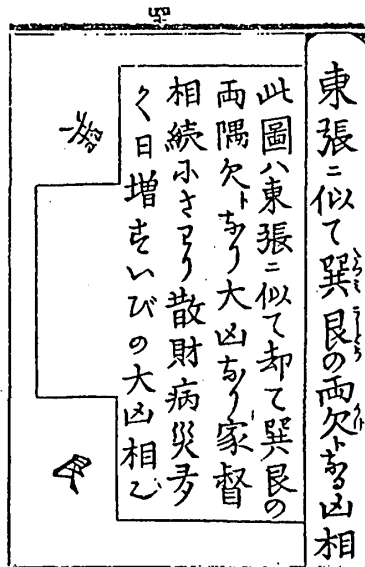 東張ニ似て巽艮の両欠トなる凶相
此圖ハ東張ニ似て却て巽艮の
両隅欠トなり大凶なり家督
相続にさわり散財病災多
く日増すいびの大凶相也
巽
艮